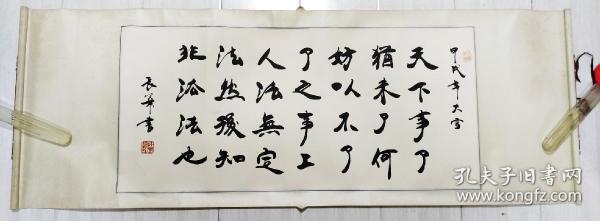 甲戌年大雪
天下事了
猶未了何
妨以不了
了之事上
人法無定
法然後知
非法法也
書
孔夫子旧书网
www.kongfz.com